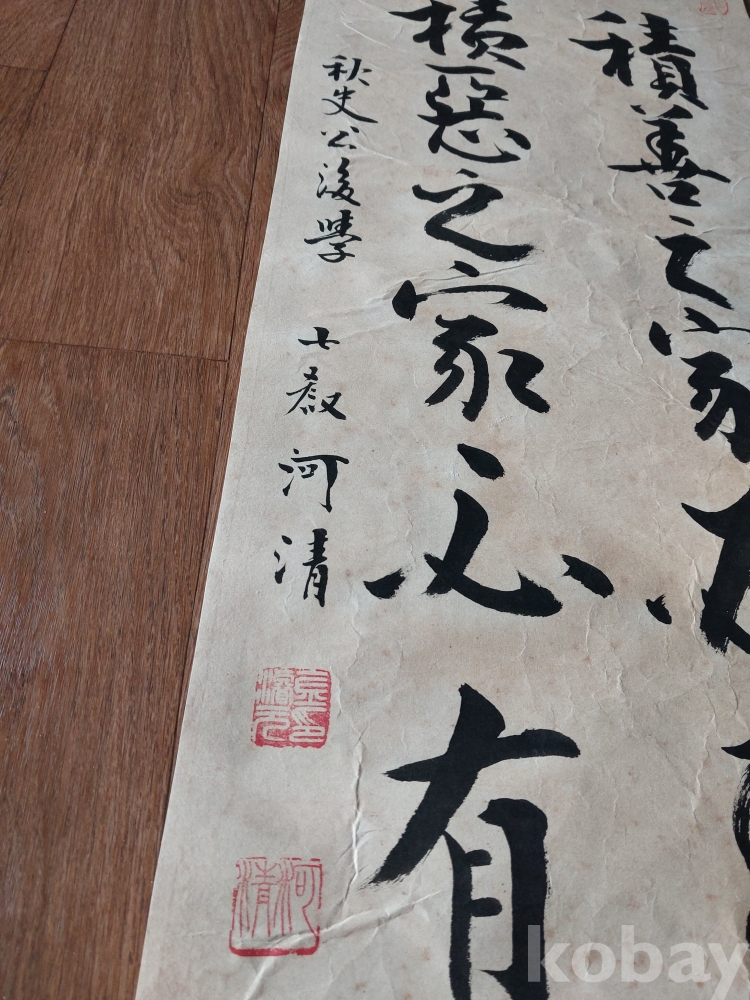 積善之家必
積惡之家必有
秋史公後學 河清
河清
kobay